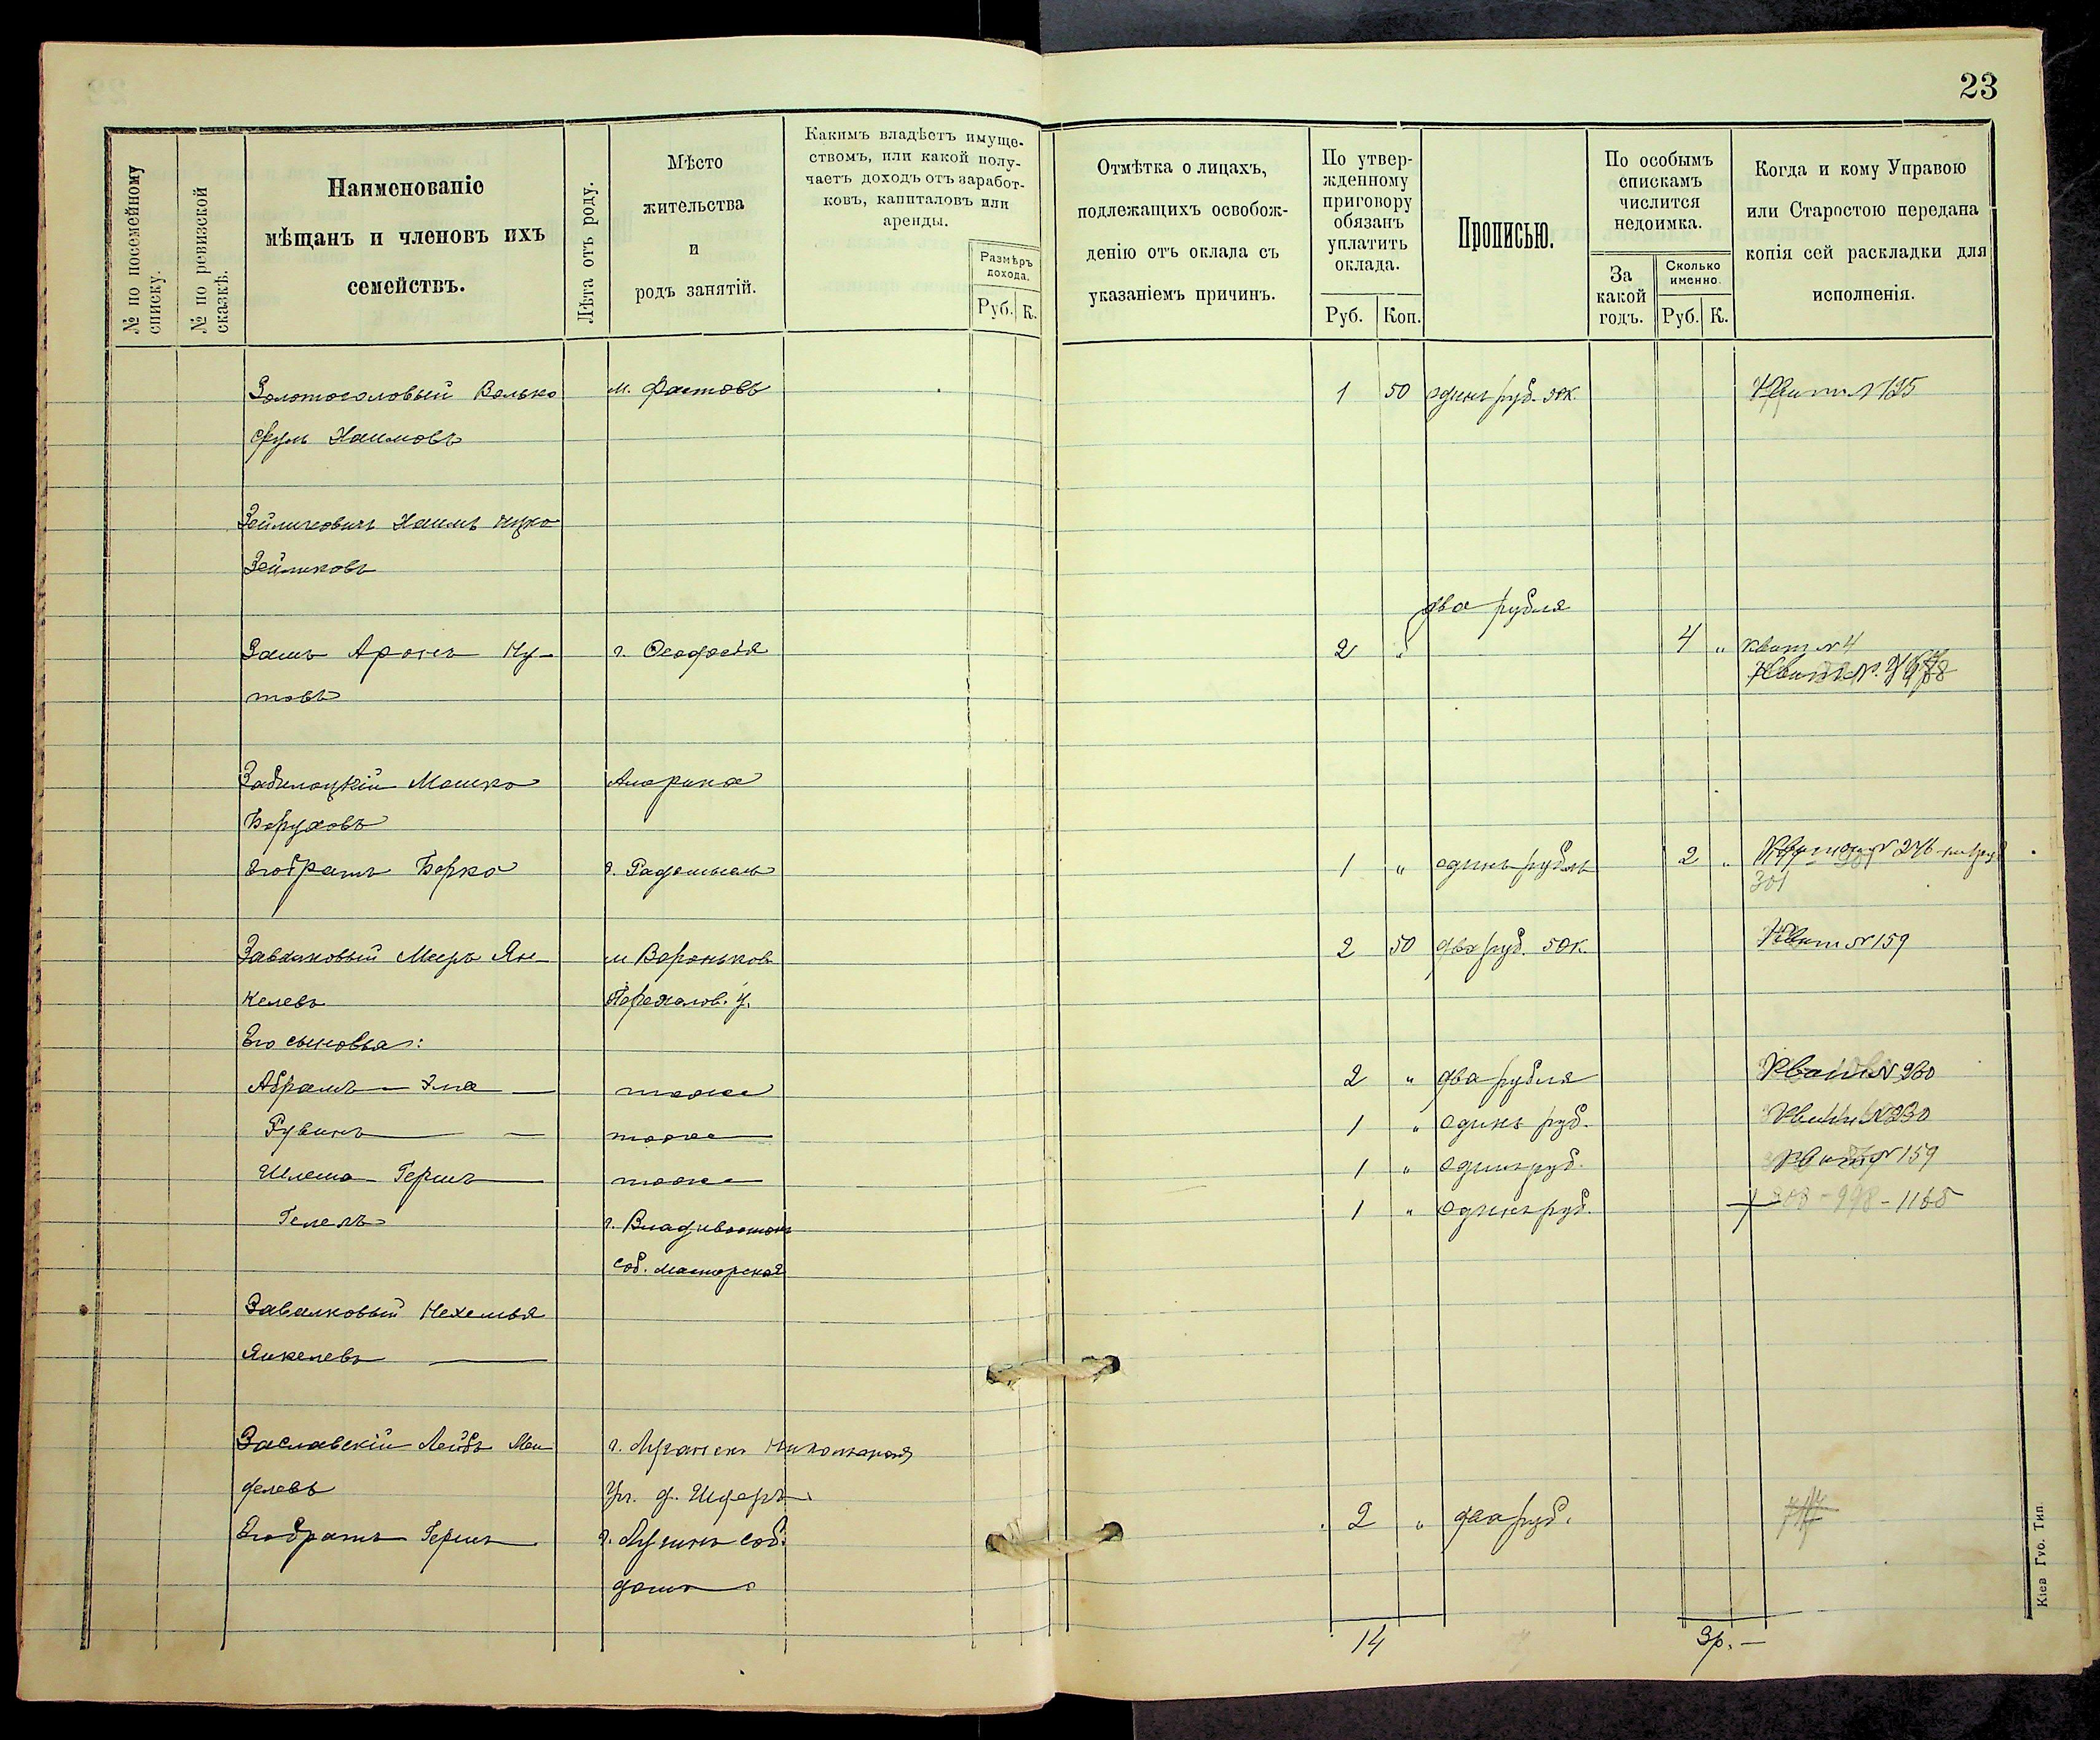 23
№ по посемейному списку.
№ по ревизской сказкѣ.
Наименованіе
мѣщанъ и членовъ ихъ
семействъ.
Лѣта отъ роду.
Мѣсто
жительства
и
родъ занятій.
Какимъ владѣетъ имуще-
ствомъ, или какой полу-
чаетъ доходъ отъ заработ-
ковъ, капиталовъ или
аренды.
Размѣръ
дохода.
Руб. К.
Отмѣтка о лицахъ,
подлежащихъ освобож-
денію отъ оклада съ
указаніемъ причинъ.
По утвер-
жденному
приговору
обязанъ
уплатить
оклада.
Руб. Коп.
Прописью.
По особымъ
спискамъ
числится
недоимка.
За
какой
годъ.
Сколько
именно.
Руб. К.
Когда и кому Управою
или Старостою передана
копія сей раскладки для
исполненія.
Золотоголовый Волько м. Фастовъ 1 50 одинъ руб. 50к. Квит № 125
Сруль Хаимовъ
Зейликовичъ Хаимъ Ицко
Зейликовъ
два рубля
Замъ Аронъ Ну- г. Ѳеодосія 2 " 4 " Квит № 4
товъ
Забилоцкій Мошко Америка
Боруховъ
Его братъ Берко г. Радомысль 1 " одинъ рубль 2 " 276
301
Завалковый Мееръ Ян- м Вороньков 2 50 два руб. 50к. Квит № 159
келевъ Переяслов. у.
Его сыновья:
Абрамъ – Эля – тоже 2 " два рубля Квит № 260
Рувинъ – тоже 1 " одинъ руб. Квит № 230
Шлема – Гершъ тоже 1 " одинъ руб. Квит № 159
г. Владивостокъ 1 " одинъ руб. 998 – 1165
соб. мастерская
Завалковый Нехемья
Янкелевъ
Заславскій Лейбъ Мен г. Луганскъ Николаевская
делевъ Ул. д.
Его братъ Гершъ соб. 2 " два руб.
домъ
14 3р. –
Кіев Губ. Тип.